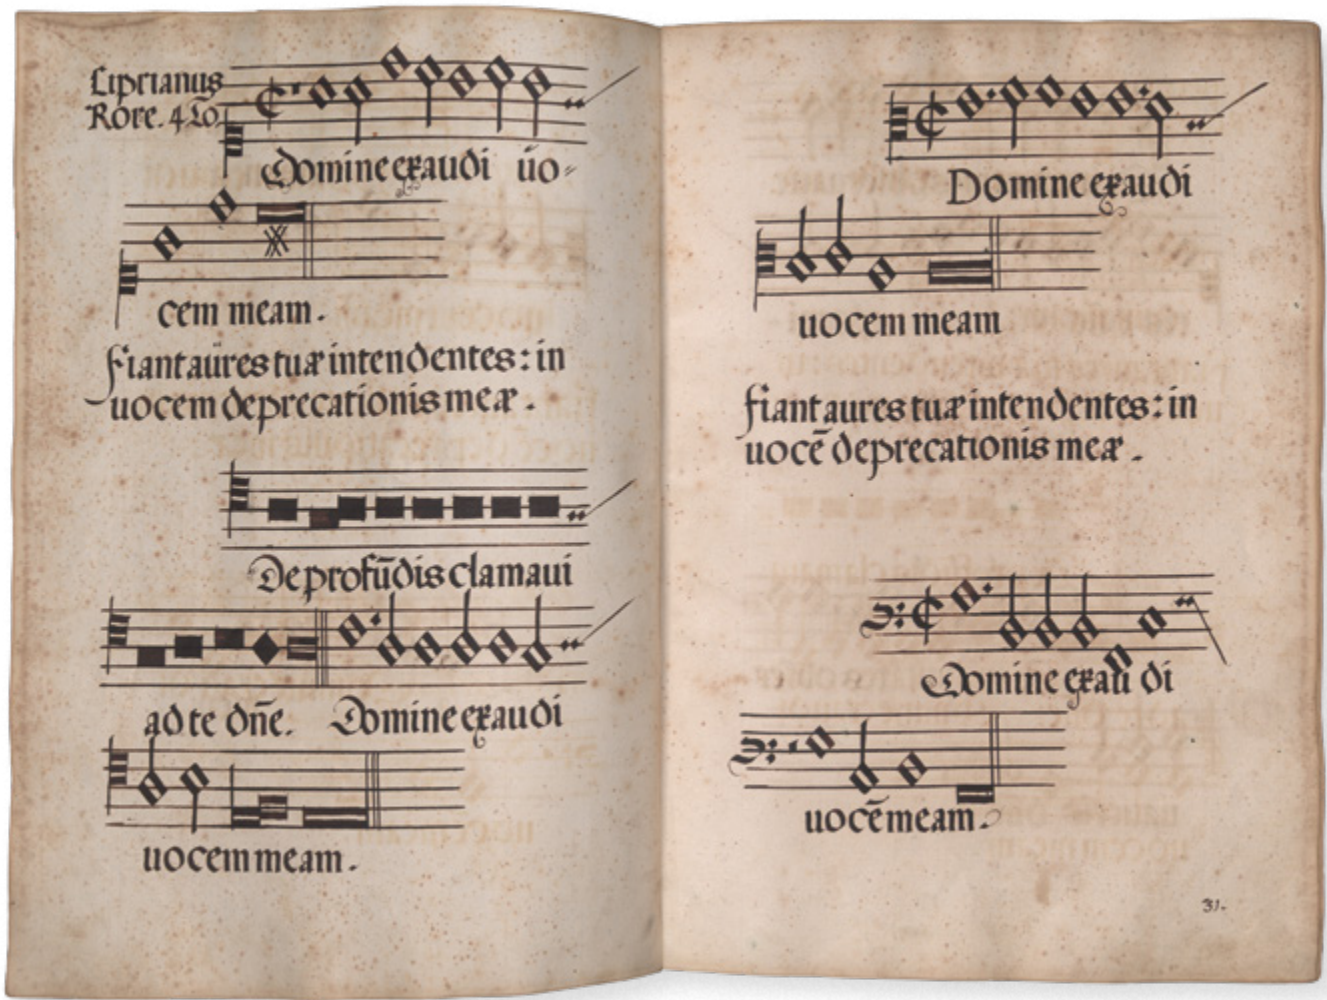 Ciprianus
Rore. 4
Domine exaudi uo-
cem meam.
fiant aures tuæ intendentes: in
uocem deprecationis meæ.
De profūdis clamaui
ad te dn̄e. Domine exaudi
uocem meam.
Domine exaudi
uocem meam
fiant aures tuæ intendentes: in
uocē deprecationis meæ.
Domine exau di
uocēmeam.
31.